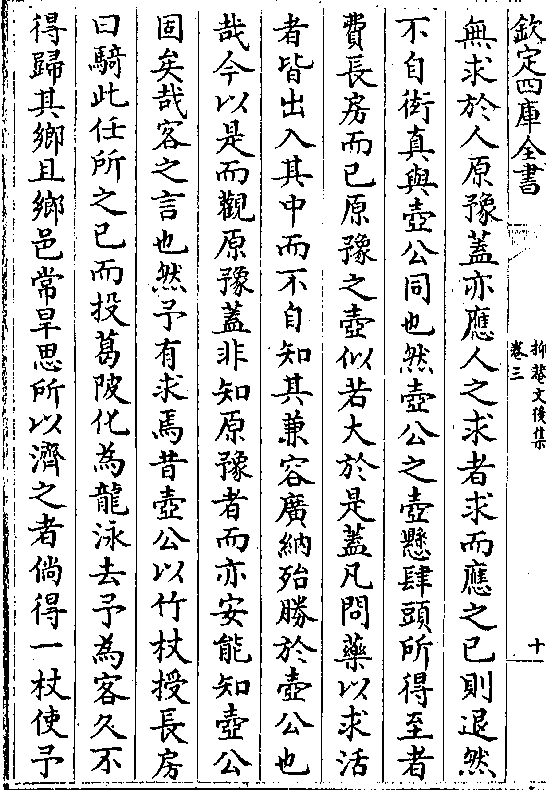 欽定四庫全書
抑菴文後集
卷三
十
無求於人原豫蓋亦應人之求者求而應之已則退然
不自衒真與壺公同也然壺公之壺懸肆頭所得至者
費長房而已原豫之壺似若大於是蓋凡問藥以求活
者皆出入其中而不自知其兼容廣納殆勝於壺公也
哉今以是而觀原豫蓋非知原豫者而亦安能知壺公
固矣哉客之言也然予有求焉昔壺公以竹杖授長房
曰騎此任所之已而投葛陂化為龍泳去予為客久不
得歸其鄉且鄉邑常旱思所以濟之者倘得一杖使予